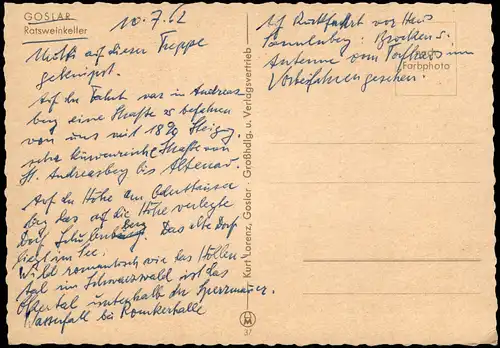 GOSLAR
Ratsweinkeller
10.7.62
Mutti auf dieser Treppe
geknipst.
Auf der Fahrt war in Andreas-
berg eine Straße zu befahren
von uns mit 18% Steigg.
sehr kurvenreiche Straße von
St. Andreasberg bis Altenau.
Auf der Höhe am Okerstausee
das auf die Höhe verlegte
Dorf Schulenberg. Das alte Dorf
liegt im See.
Wild romantisch wie das Höllen-
tal im Schwarzwald ist das
Okertal unterhalb der Sperrmauer.
Wasserfall bei Romkerhalle
Kurt Lorenz, Goslar - Großhdlg. u. Verlagsvertrieb
37
Auf Rückfahrt vor Haus
Sonnenberg: Brocken u.
Antenne vom Torfhaus im
Vorbeifahren gesehen!
Farbphoto